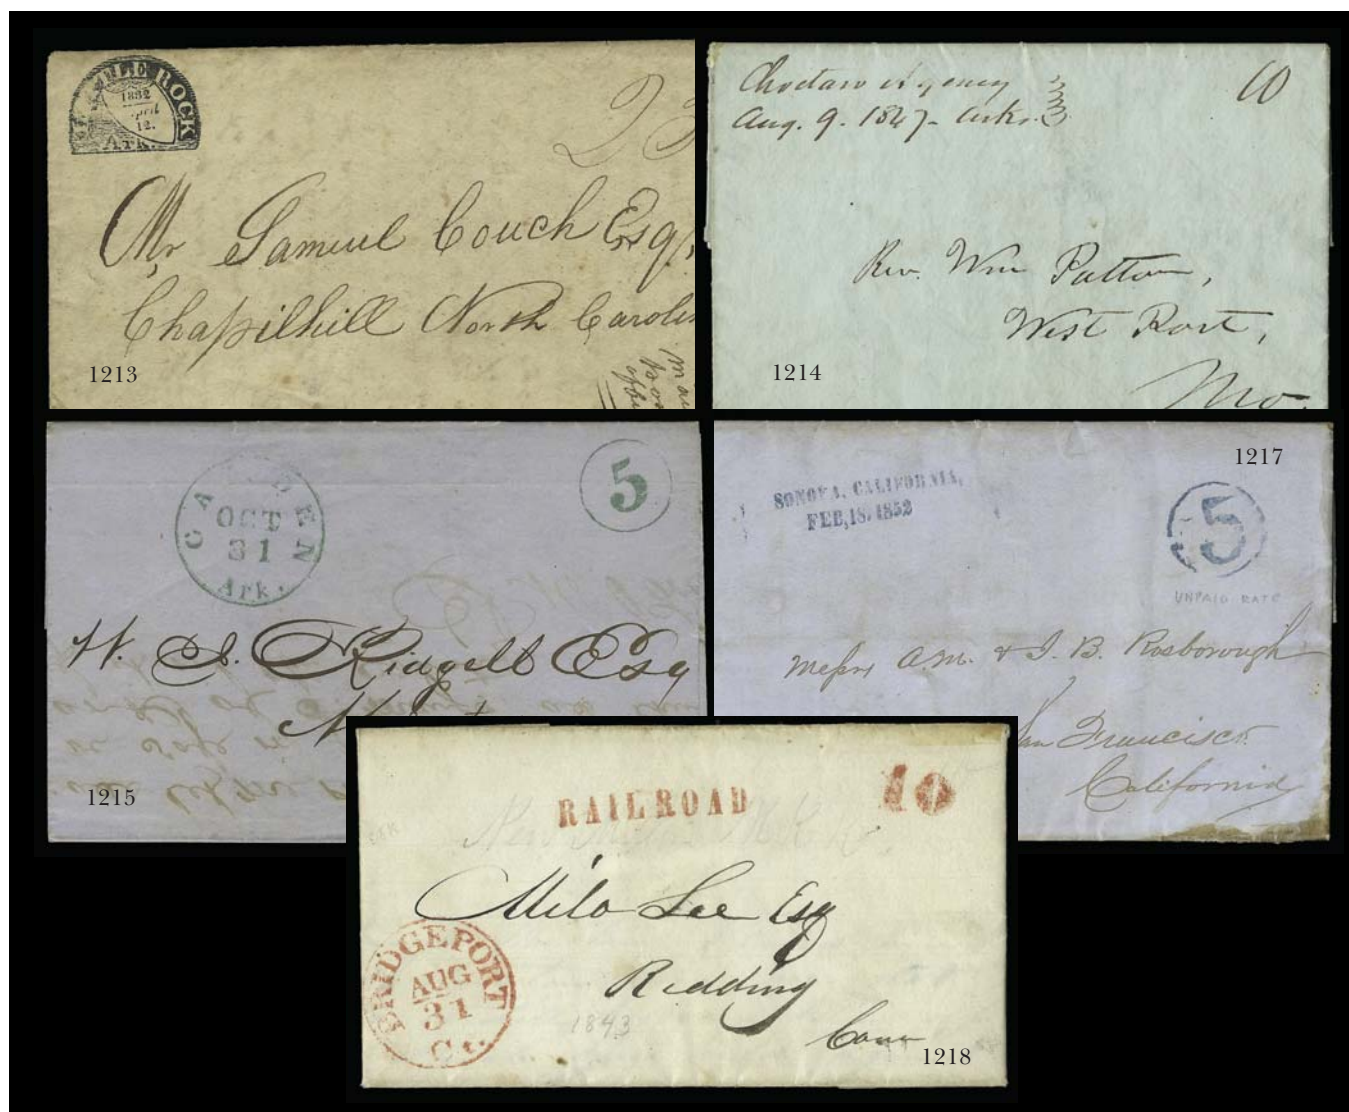 LITTLE ROCK
1832
April
12.
Ark.
25
Mr Samuel Couch Esq.
Chapilhill North Carolin
1213
Choctaw Agency
Aug. 9. 1847 - Arks.
10
Rev. Wm Patton,
West Port,
Mo.
1214
CAMDEN
OCT
31
Ark.
5
Ridgell Esq
1215
1217
SONOMA, CALIFORNIA,
FEB, 18, 1852
5
UNPAID RATE
Messrs A.M. & J. B. Rosborough
San Francisco
California
RAILROAD
10
Milo Lee Esq
Redding
Conn
BRIDGEPORT
AUG
31
Ct.
1843
1218